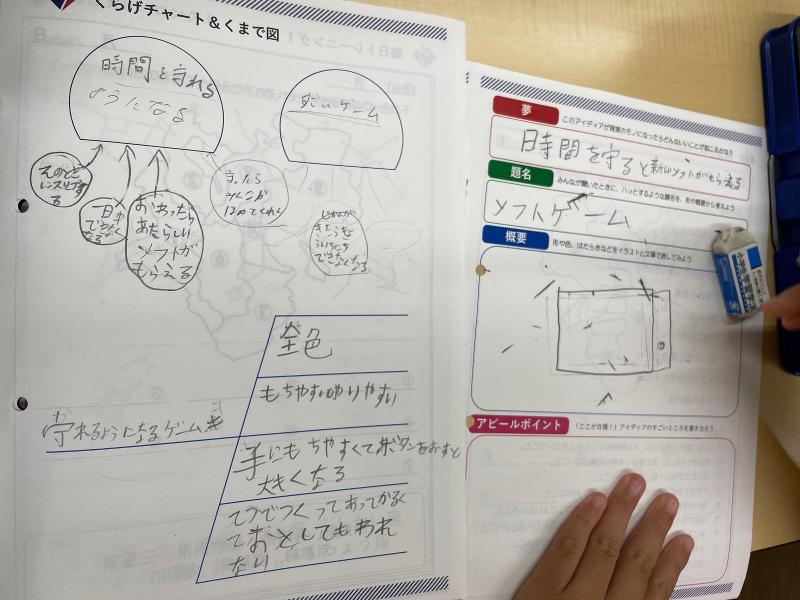 くらげチャート＆くまで図
時間を守れる
ようになる
すごいゲーム
おわったら
あたらしい
ソフトが
もらえる
守ったら
できなくなる
金色
もちやすいやりやすい
守れるようになるゲーム
手にもちやすくてボタンをおすと
大きくなる
てつでつくってあってかるく
ておとしてもわれ
ない
夢
このアイディアが現実のモノになったらどんないいことが起こるかな？
時間を守ると新しいソフトがもらえる
題名
みんなが聞いたときに、ハッとするような題名を、形や概要から考えよう
ソフトゲーム
概要
形や色、はたらきなどをイラストと文章で表してみよう
アピールポイント
「ここが自慢！」アイディアのすごいところを書き出そう